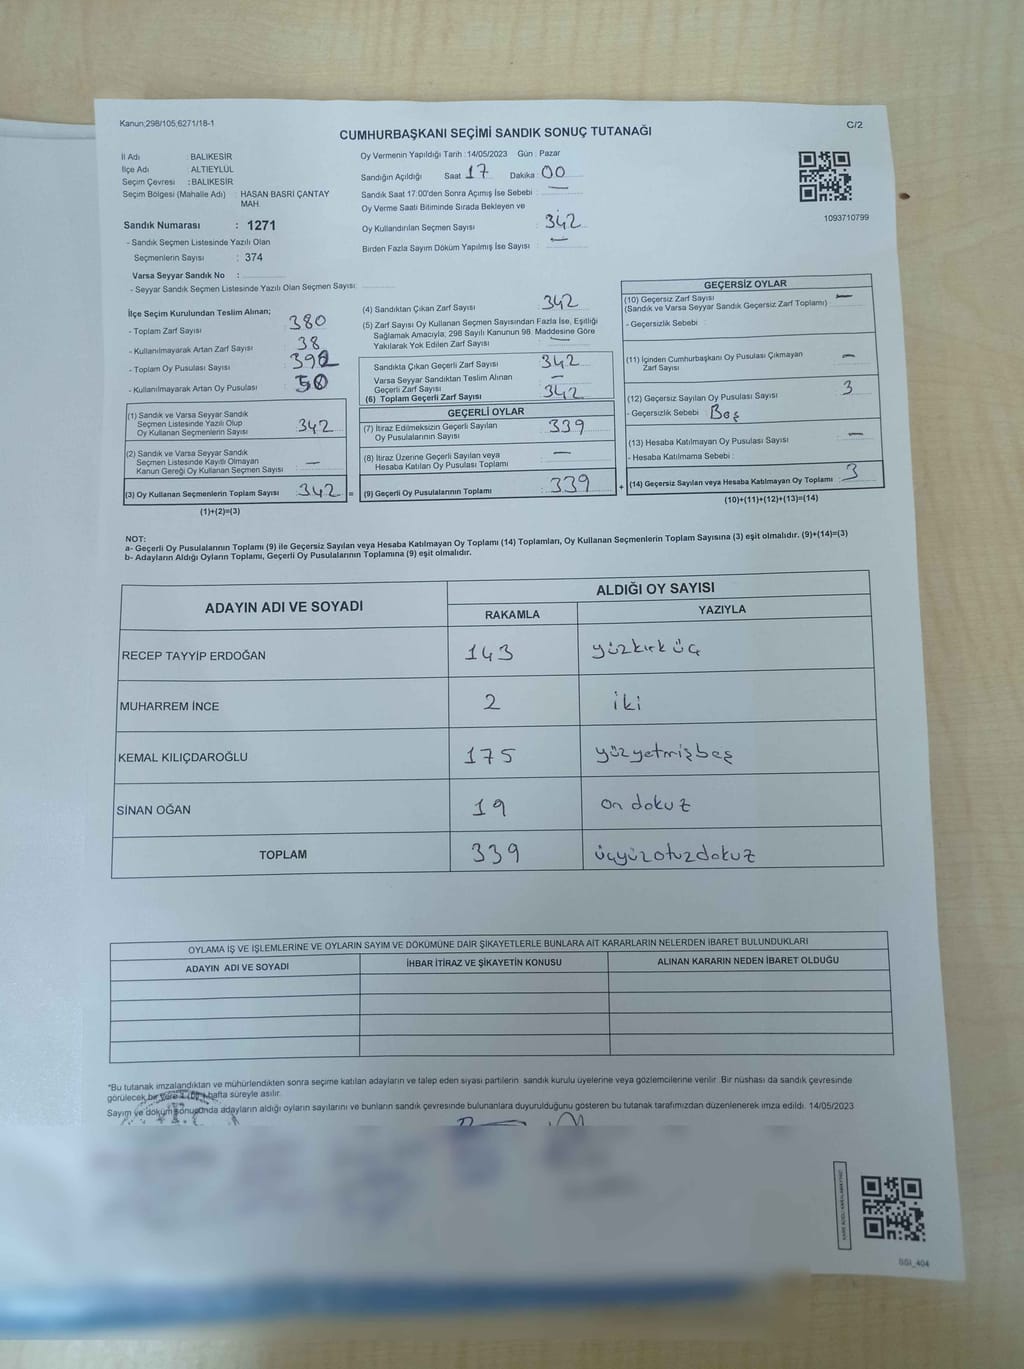 Kanun;298/105,6271/18-1
C/2
CUMHURBAŞKANI SEÇİMİ SANDIK SONUÇ TUTANAĞI
İl Adı : BALIKESİR
İlçe Adı : ALTIEYLÜL
Seçim Çevresi : BALIKESİR
Seçim Bölgesi (Mahalle Adı) : HASAN BASRİ ÇANTAY MAH.
Sandık Numarası : 1271
- Sandık Seçmen Listesinde Yazılı Olan
Seçmenlerin Sayısı : 374
Varsa Seyyar Sandık No :
- Seyyar Sandık Seçmen Listesinde Yazılı Olan Seçmen Sayısı:
Oy Vermenin Yapıldığı Tarih : 14/05/2023 Gün : Pazar
Sandığın Açıldığı Saat 17 Dakika 00
Sandık Saat 17:00'den Sonra Açımış İse Sebebi : —
Oy Verme Saati Bitiminde Sırada Bekleyen ve
Oy Kullandırılan Seçmen Sayısı : 342
Birden Fazla Sayım Döküm Yapılmış İse Sayısı : —
1093710799
İlçe Seçim Kurulundan Teslim Alınan;
- Toplam Zarf Sayısı : 380
- Kullanılmayarak Artan Zarf Sayısı : 38
- Toplam Oy Pusulası Sayısı : 392
- Kullanılmayarak Artan Oy Pusulası : 50
(1) Sandık ve Varsa Seyyar Sandık
Seçmen Listesinde Yazılı Olup
Oy Kullanan Seçmenlerin Sayısı : 342
(2) Sandık ve Varsa Seyyar Sandık
Seçmen Listesinde Kayıtlı Olmayan
Kanun Gereği Oy Kullanan Seçmen Sayısı : —
(3) Oy Kullanan Seçmenlerin Toplam Sayısı : 342 =
(1)+(2)=(3)
(4) Sandıktan Çıkan Zarf Sayısı : 342
(5) Zarf Sayısı Oy Kullanan Seçmen Sayısından Fazla İse, Eşitliği
Sağlamak Amacıyla; 298 Sayılı Kanunun 98. Maddesine Göre
Yakılarak Yok Edilen Zarf Sayısı : —
Sandıkta Çıkan Geçerli Zarf Sayısı : 342
Varsa Seyyar Sandıktan Teslim Alınan
Geçerli Zarf Sayısı : —
(6) Toplam Geçerli Zarf Sayısı : 342
GEÇERLİ OYLAR
(7) İtiraz Edilmeksizin Geçerli Sayılan
Oy Pusulalarının Sayısı : 339
(8) İtiraz Üzerine Geçerli Sayılan veya
Hesaba Katılan Oy Pusulası Toplamı : —
(9) Geçerli Oy Pusulalarının Toplamı : 339 +
GEÇERSİZ OYLAR
(10) Geçersiz Zarf Sayısı : —
(Sandık ve Varsa Seyyar Sandık Geçersiz Zarf Toplamı)
- Geçersizlik Sebebi :
(11) İçinden Cumhurbaşkanı Oy Pusulası Çıkmayan
Zarf Sayısı : —
(12) Geçersiz Sayılan Oy Pusulası Sayısı : 3
- Geçersizlik Sebebi : Boş
(13) Hesaba Katılmayan Oy Pusulası Sayısı : —
- Hesaba Katılmama Sebebi :
(14) Geçersiz Sayılan veya Hesaba Katılmayan Oy Toplamı : 3
(10)+(11)+(12)+(13)=(14)
NOT:
a- Geçerli Oy Pusulalarının Toplamı (9) ile Geçersiz Sayılan veya Hesaba Katılmayan Oy Toplamı (14) Toplamları, Oy Kullanan Seçmenlerin Toplam Sayısına (3) eşit olmalıdır. (9)+(14)=(3)
b- Adayların Aldığı Oyların Toplamı, Geçerli Oy Pusulalarının Toplamına (9) eşit olmalıdır.
ADAYIN ADI VE SOYADI
ALDIĞI OY SAYISI
RAKAMLA YAZIYLA
RECEP TAYYİP ERDOĞAN 143 yüzkırk üç
MUHARREM İNCE 2 iki
KEMAL KILIÇDAROĞLU 175 yüzyetmişbeş
SİNAN OĞAN 19 on dokuz
TOPLAM 339 üçyüzotuzdokuz
OYLAMA İŞ VE İŞLEMLERİNE VE OYLARIN SAYIM VE DÖKÜMÜNE DAİR ŞİKAYETLERLE BUNLARA AİT KARARLARIN NELERDEN İBARET BULUNDUKLARI
ADAYIN ADI VE SOYADI İHBAR İTİRAZ VE ŞİKAYETİN KONUSU ALINAN KARARIN NEDEN İBARET OLDUĞU
*Bu tutanak imzalandıktan ve mühürlendikten sonra seçime katılan adayların ve talep eden siyasi partilerin sandık kurulu üyelerine veya gözlemcilerine verilir. Bir nüshası da sandık çevresinde
görülecek bir yere 1 (bir) hafta süreyle asılır.
Sayım ve döküm sonucunda adayların aldığı oyların sayılarını ve bunların sandık çevresinde bulunanlara duyurulduğunu gösteren bu tutanak tarafımızdan düzenlenerek imza edildi. 14/05/2023